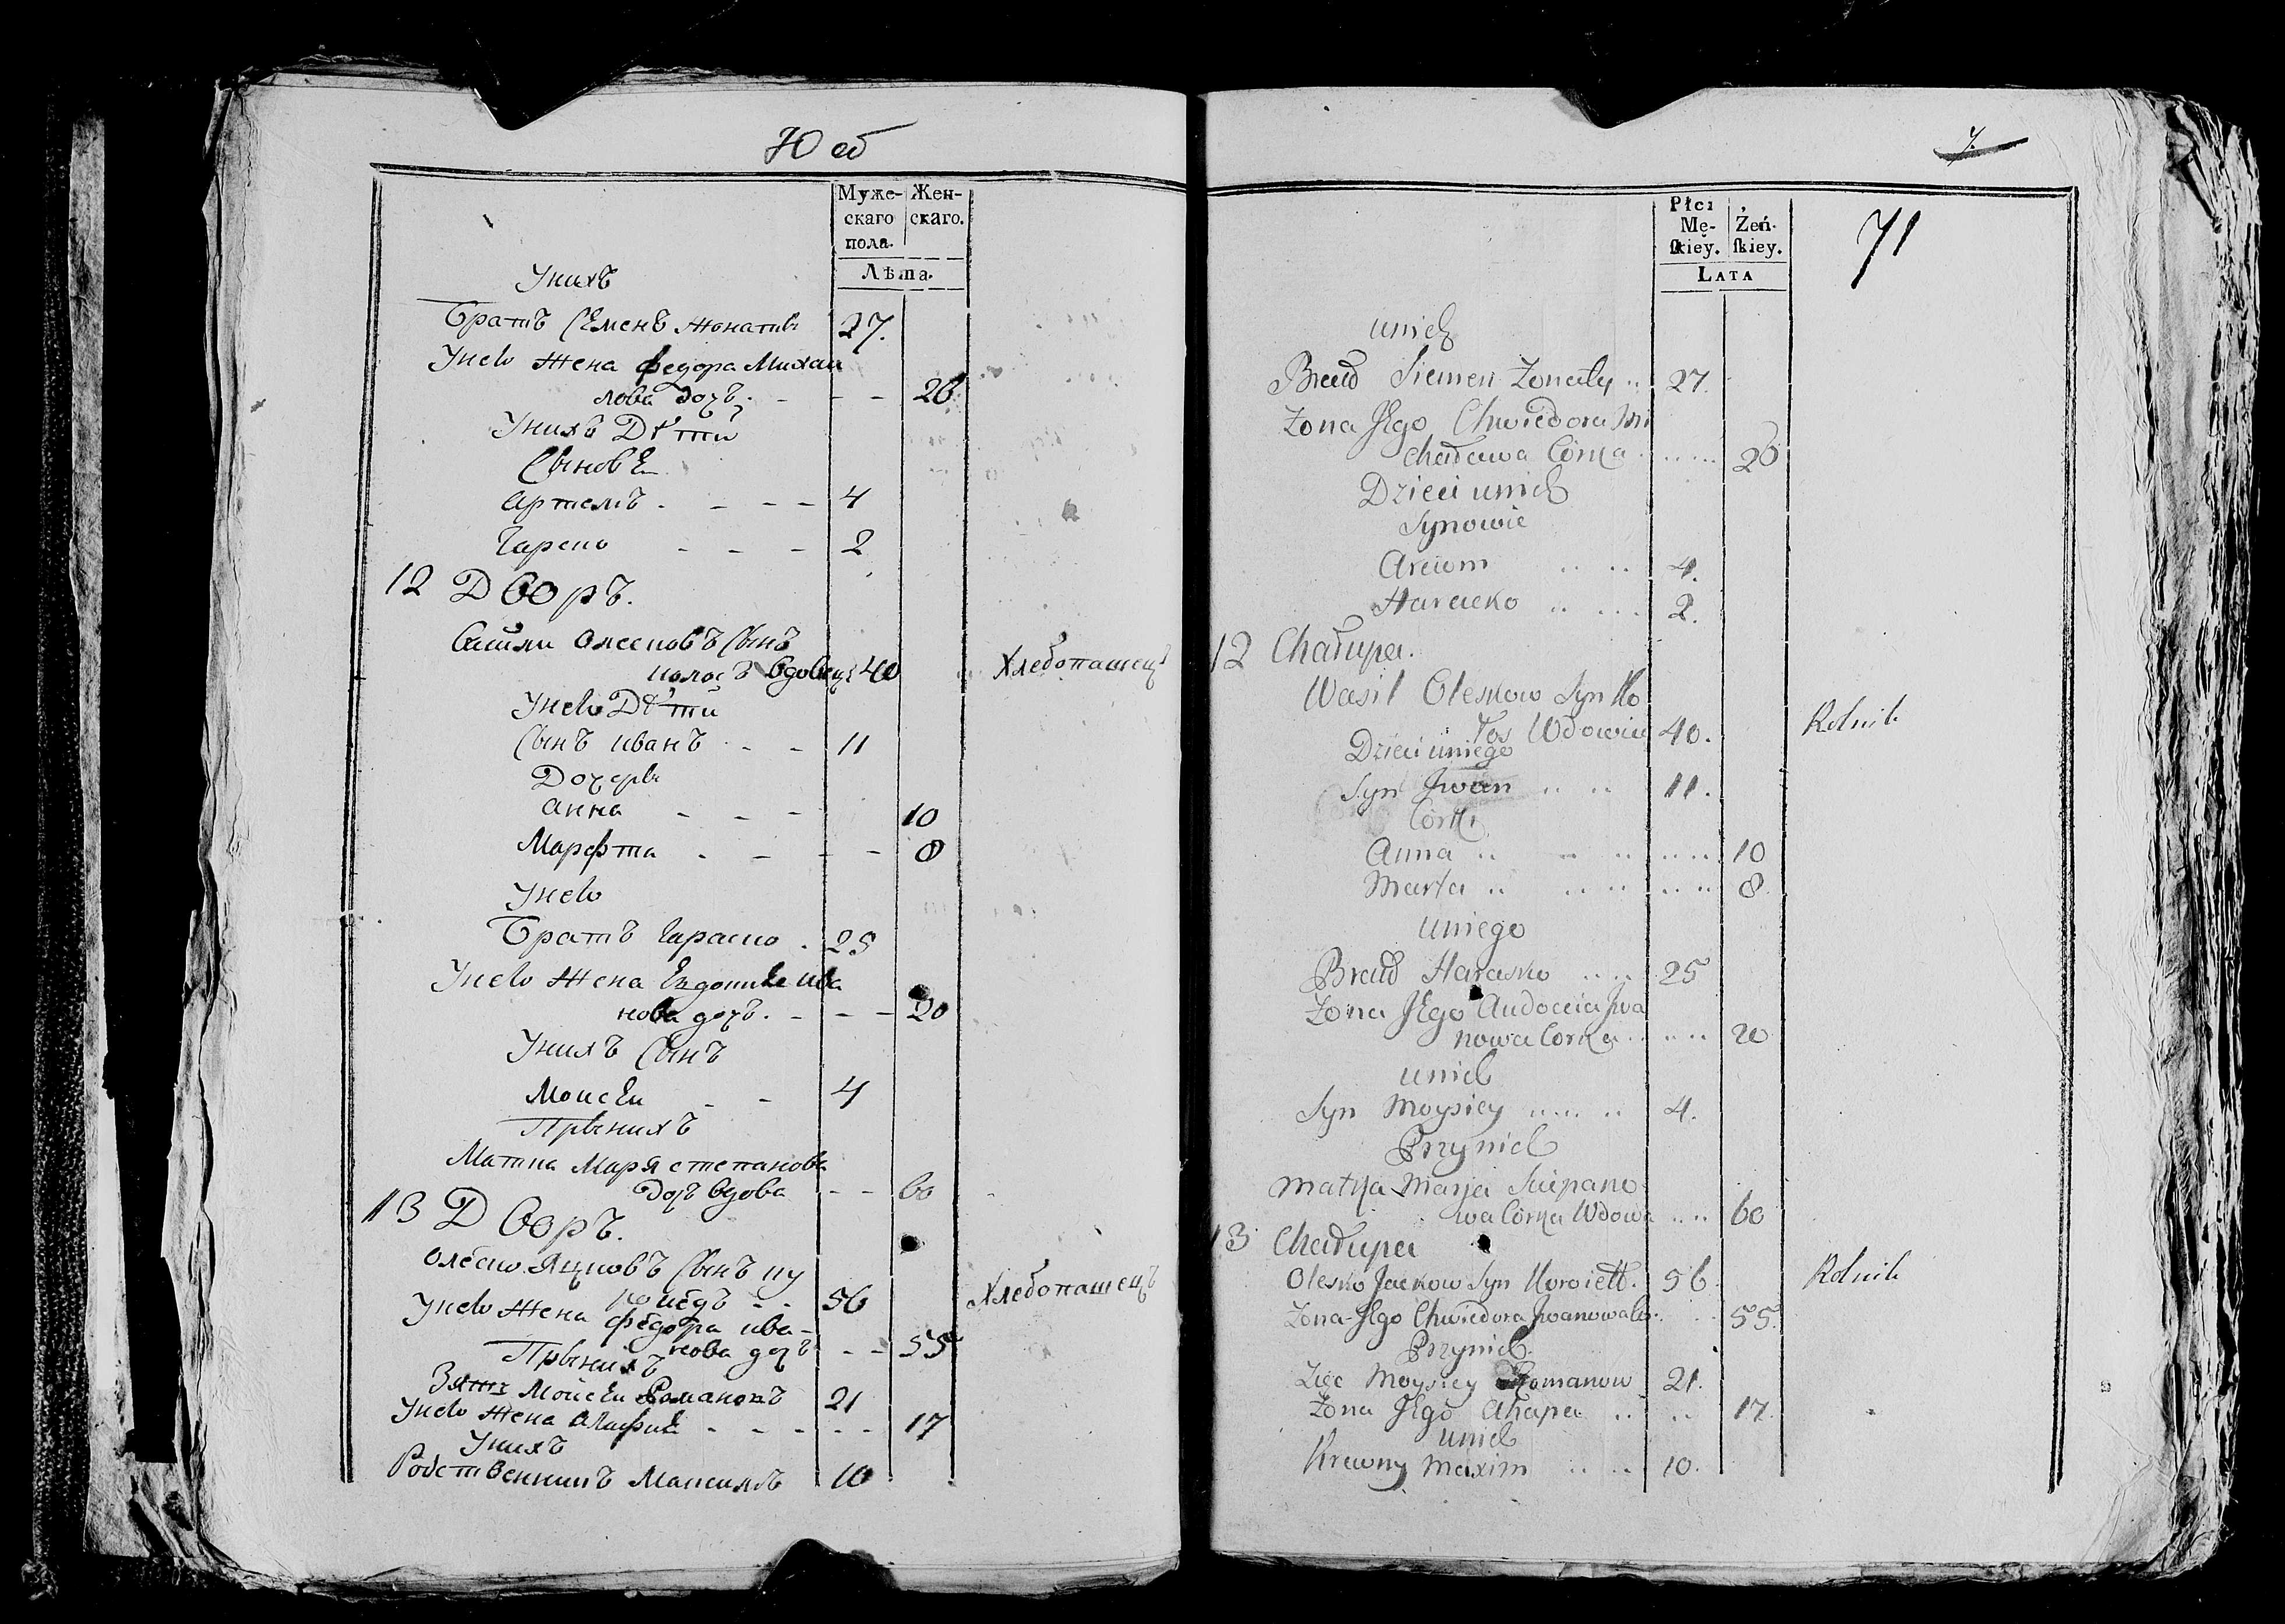 Муже-
скаго
пола.
Жен-
скаго.
Лѣта.
Унихъ
Братъ Семенъ Жонатъ 27.
Унево Жена Федора Михаи
лова дочъ. 26
Унихъ Дѣти
Сыновѣ
Артемъ 4
Гараско 2
12 Дворъ.
Олесковъ Сынъ
колосъ Вдовецъ 40 Хлебопашецъ
Унево Дѣти
Сынъ иванъ 11
Дочеры
Анна 10
Марфта 8
Унево
Братъ Гараско 25
Унево Жена Евдокиѣ ива
нова дочъ. 20
Унихъ Сынъ
Моисѣи 4
Прыихъ
Матка Маря степанова
Дочъ вдова 60
13 Дворъ.
Олеско Яцковъ Сынъ
56 Хлебопашецъ
Унево Жена федора ива-
нова дочъ 55
Прынихъ
Зять Моисѣи Романовъ 21
Унево Жена 17
Унихъ
Родственникъ Максимъ 10
7.
71
Płci
Mę-
ſkiey.
Żeń-
ſkiey.
LATA
unich
Bratt Siemen Żonaty 27.
Żona Jego Chwiedora Mi
chałowa Córka 26
Dzieci unich
Synowie
Arciom 4.
Harasko 2.
12 Chałupa.
Wasil Oleskow Syn Ko
łos Wdowiec 40. Rolnik
Dzieci uniego
Syn Jwan 11.
Córki
Anna 10
Marta 8.
uniego
Bratt Harasko 25
Żona Jego Audoccia Jwa
nowa Córka 20
unich
Syn Moysiey 4.
Przynich
Matka Marja Sciepano
wa Córka Wdowa 60
13 Chałupa
Olesko Jackow Syn 56. Rolnik
Żona Jego Chwiedora Jwanowa 55.
Przynich
Zięć Moysiey Romanow 21.
Żona Jego Ahapa 17.
unich
Krewny Maxim 10.